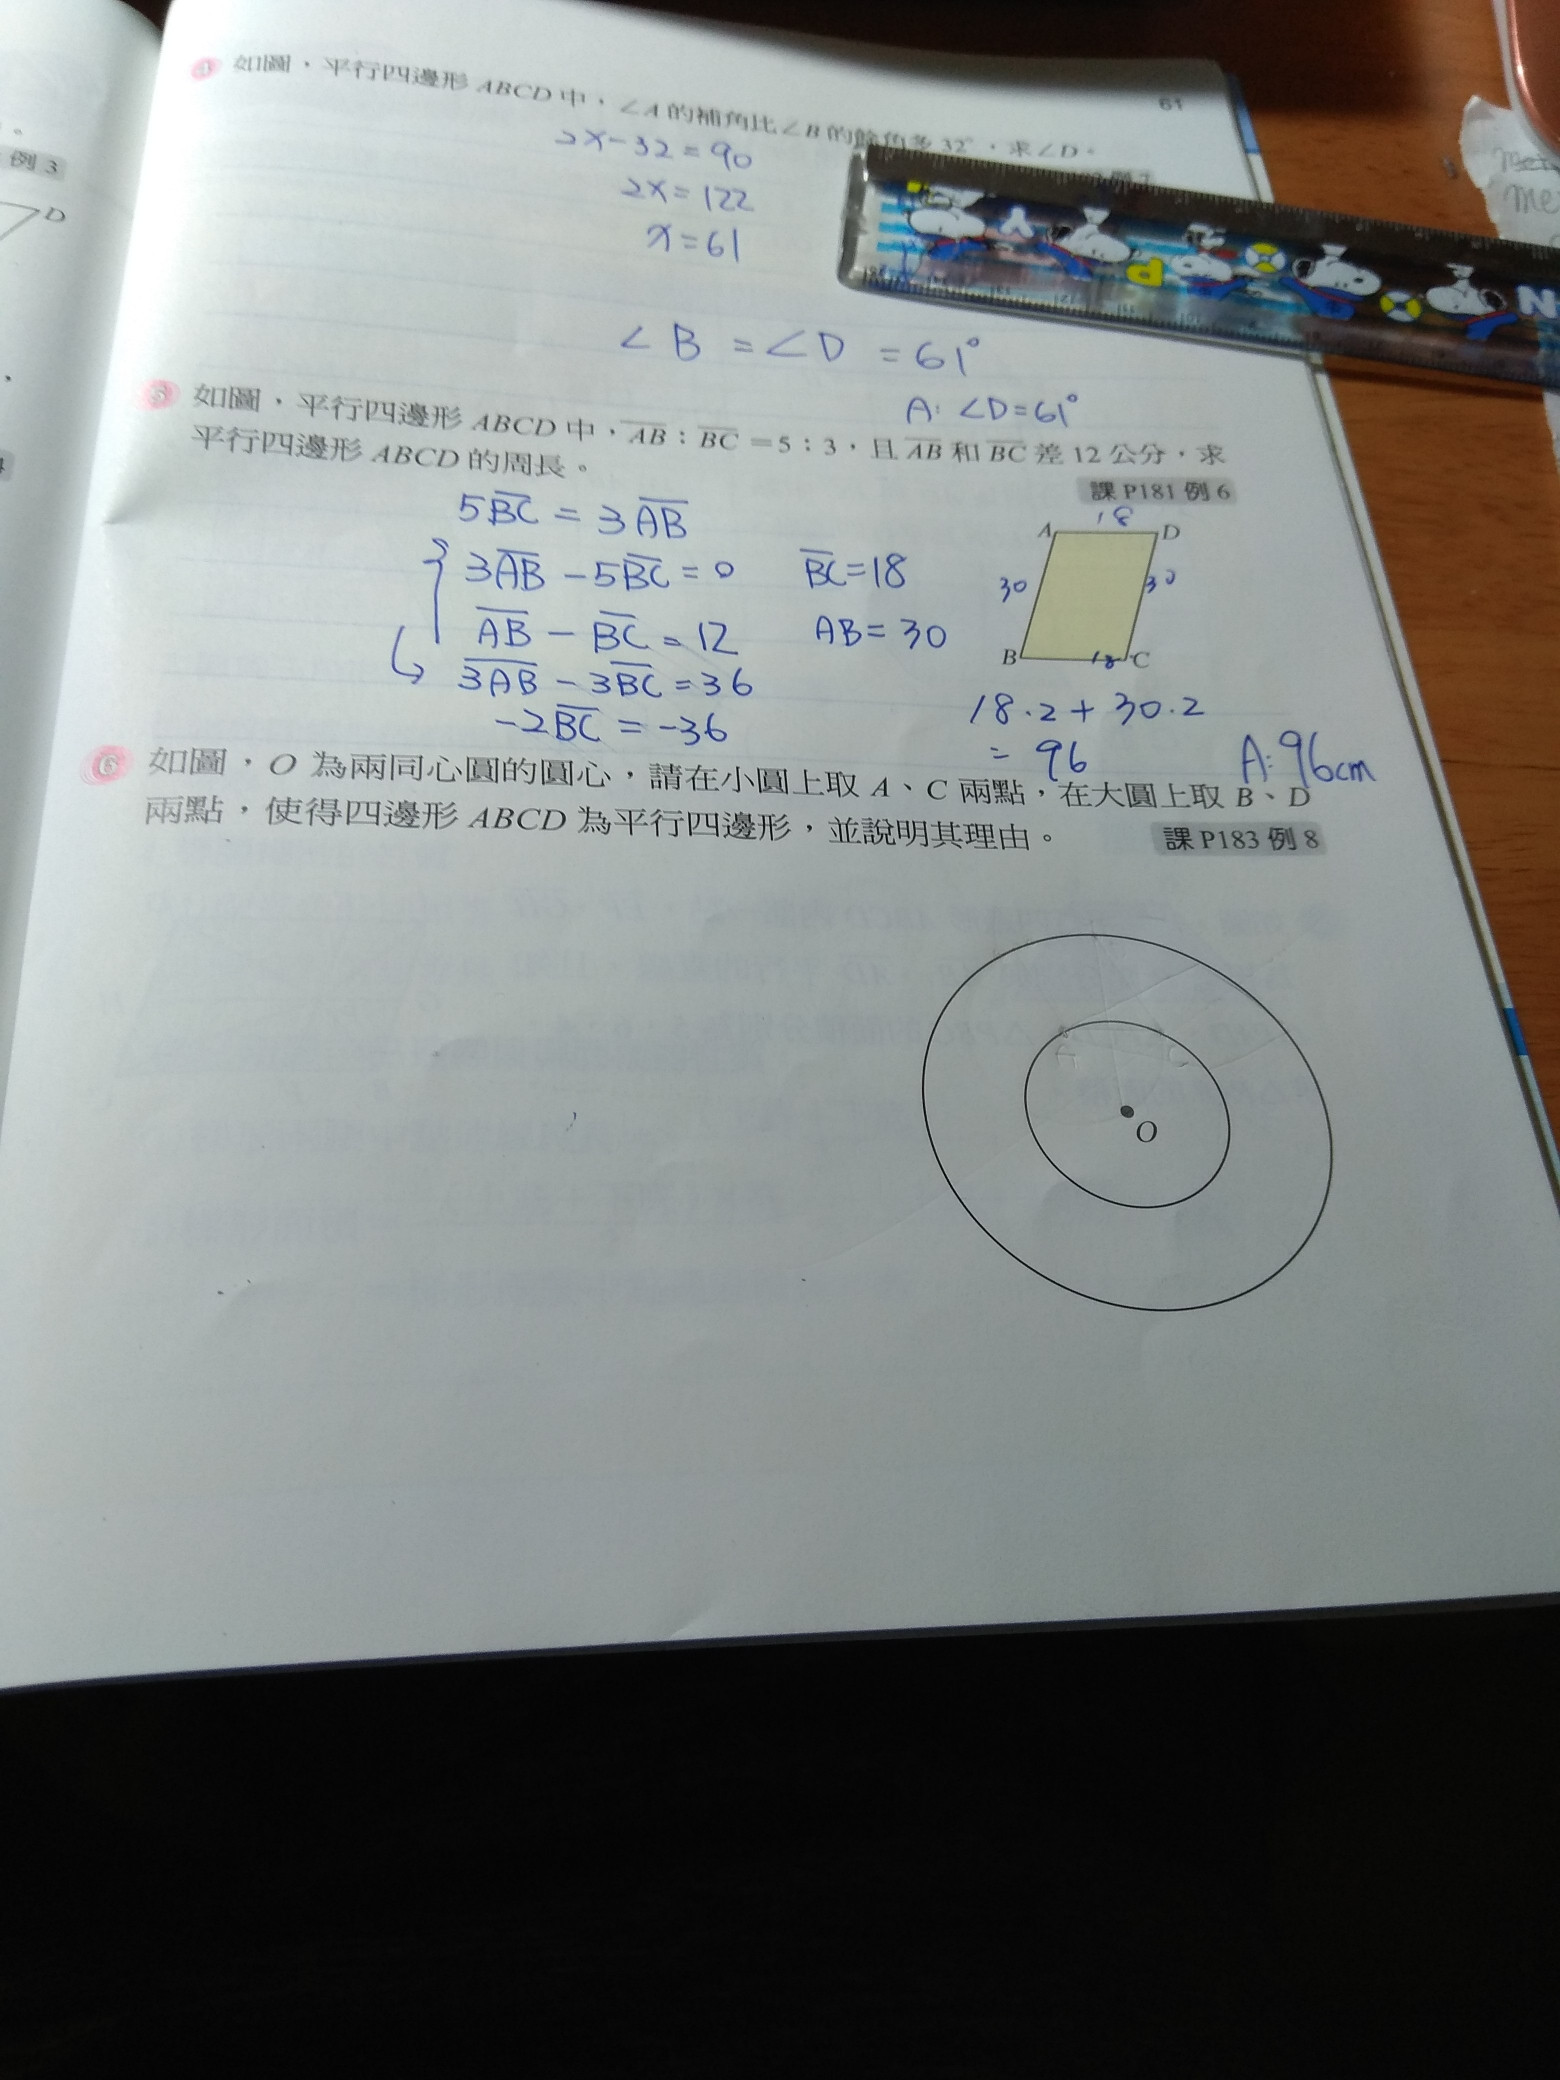 61
4 如圖，平行四邊形 ABCD 中，∠A 的補角比∠B 的餘角多 32°，求∠D。
2x-32=90
2x=122
x=61
∠B=∠D=61°
A: ∠D=61°
例 3
D
5 如圖，平行四邊形 ABCD 中，AB：BC=5：3，且 AB 和 BC 差 12 公分，求
平行四邊形 ABCD 的周長。
課 P181 例 6
5BC = 3AB
3AB - 5BC = 0
AB - BC = 12
3AB - 3BC = 36
-2BC = -36
BC=18
AB=30
18
A D
30 30
B 18 C
18.2+30.2
= 96
A: 96cm
6 如圖，O 為兩同心圓的圓心，請在小圓上取 A、C 兩點，在大圓上取 B、D
兩點，使得四邊形 ABCD 為平行四邊形，並說明其理由。
課 P183 例 8
A C
O
N
me